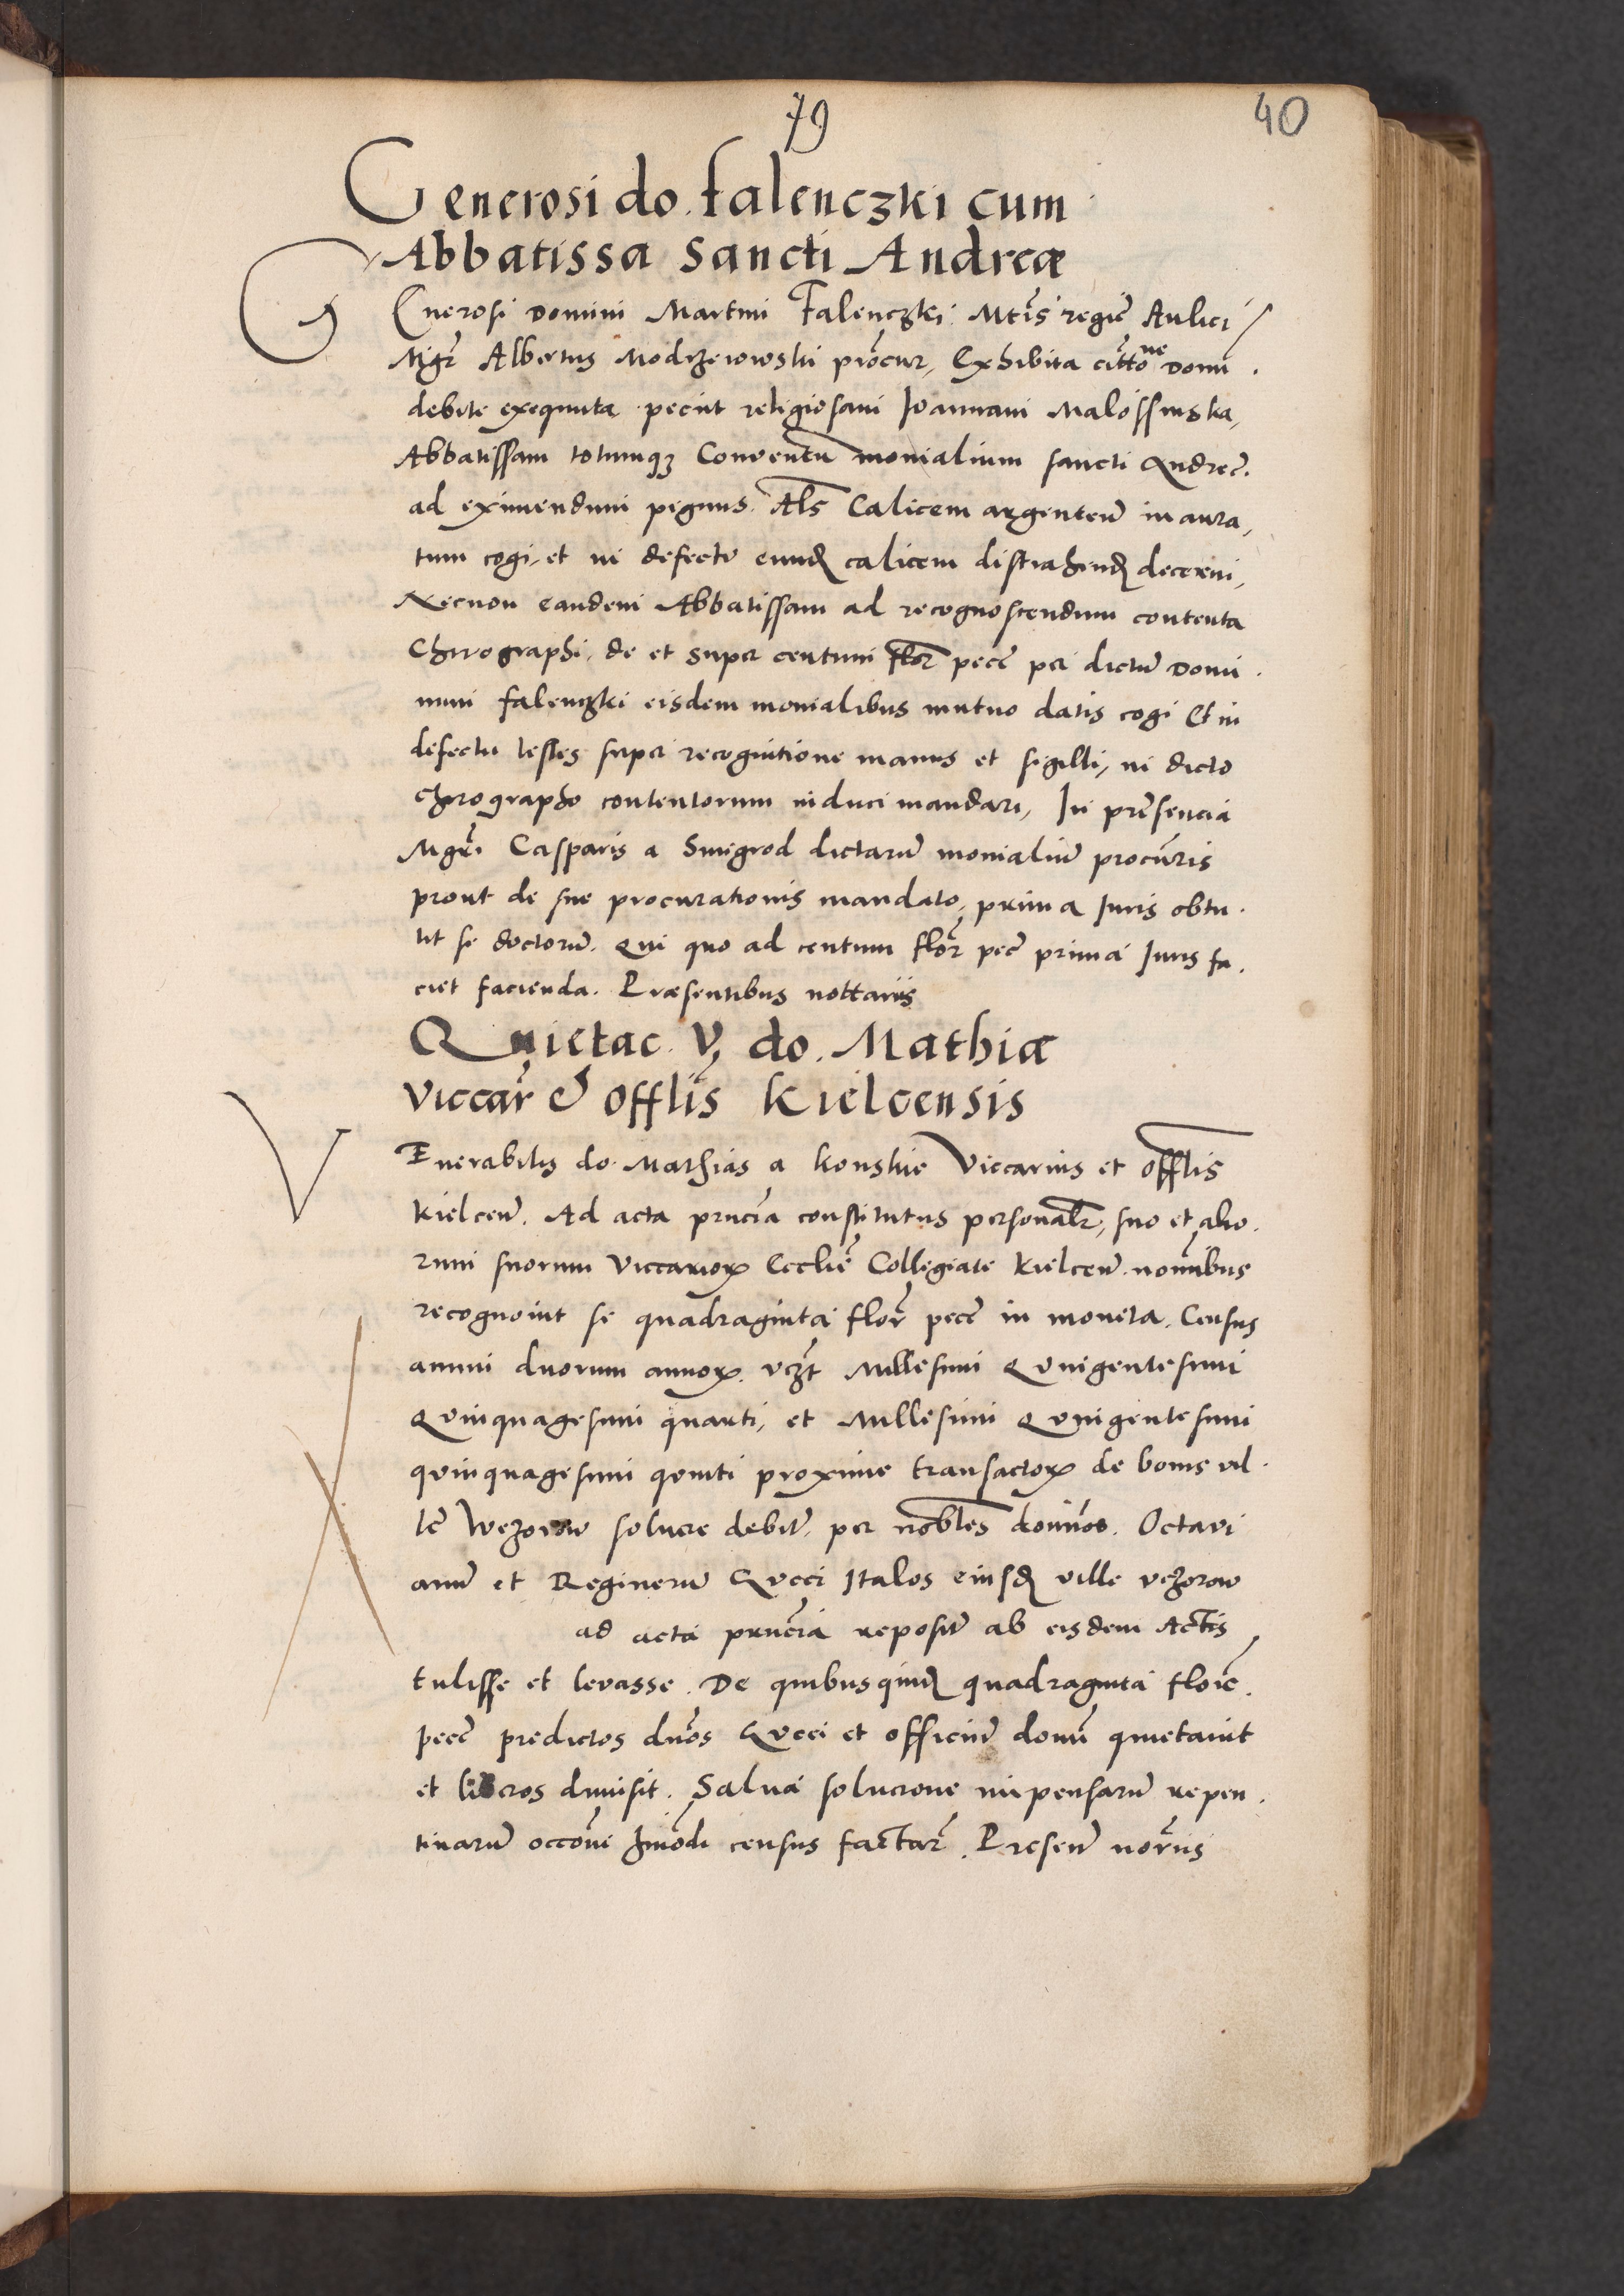 79
40
Generosi do. falenczki cum
Abbatissa Sancti Andreæ
GEnerosi Domini Martini Falenczki Mtis regie Aulici
Mgr Albertus Modrzeiowski procur, Exhibita cittone domi
debite exequuta peciit religiosam Ioannam Malossinska,
Abbatissam totumq3 Conventu monialium sancti Andree.
ad eximendum pignus. Als Calicem argenteu inaura,
tum cogi, et in defectu eund calicem distrahend decerni,
Necnon eandem Abbatissam ad recognoscendum contenta
Chirographi, de et super centum flor pece per dictu Domi
num falenczki eisdem monialibus mutuo datis cogi Et in
defectu testes super recognitione manus et sigilli, in dicto
chirographo contentorum induci mandari, In presencia
Mgri Casparis a Smigrod dictaru monialiu procuris
prout de sue procurationis mandato, prima Iuris obtu
lit se doctoru. Qui quo ad centum flor pece prima Iuris fa
ciet facienda. Præsentibus nottariis
Quietac. V. do. Mathiæ
viccar & offlis Kielcensis
VEnerabilis do. Mathias a Konskie Viccarius et offlis
Kielcen. Ad acta prncia constitutus personalr, suo et alio
rum suorum viccarior Ecclie Collegiate Kielcen. nomibus
recognovit se quadraginta flor pece in moneta. Census
annui duorum annor. vzt Millesimi Quingentesimi
Quinquagesimi quarti, et Millesimi Quingentesimi
quinquagesimi quinti proxime transactor de bonis vil
le Wezorow solvere debit. per nobles dominos. Octavi
anu et Regineru Gucci Italos eiusd ville vezorow
ad acta prncia reposit ab eisdem Actis
tulisse et levasse. De quibusquid quadraginta flore.
pece predictos dnos Gucci et officiu domi quietavit
et liberos dimisit. Salva solucione impensaru repen
tinaru occone hmodi census factar. Presen norüs